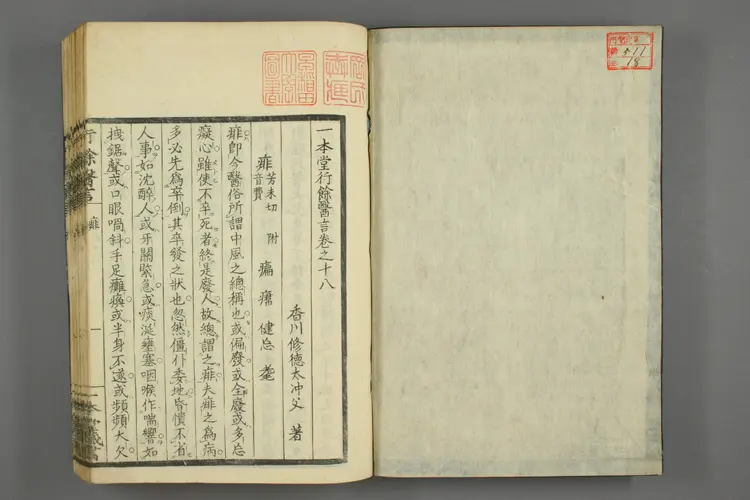 一本堂行餘醫言卷之十八
香川修德太冲父 著
痱 芳未切 音費 附 㾫 痱 健忘 耄
痱即今醫俗所謂中風之總稱也或偏發或全廢或多忘
癡心雖使不卒死者終是廢人故總謂之痱夫痱之為病
多必先為卒倒其卒發之狀也忽然僵仆委地昏憒不省
人事如沈醉人或牙關緊急或痰涎壅塞咽喉作喘響如
拽鋸聲或口眼喎斜手足癱瘓或半身不遂或頻頻大欠
行餘醫言
痱
一
511
18